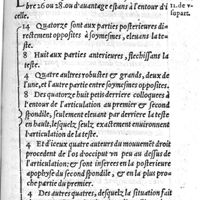 bre 26 ou 28. ou d'avantage estans à l'entour d'i-
celle.
14 Quatorze sont aux parties posterieures di-
rectement opposites à soymesmes, eleuans la te-
ste.
8 Huit aux parties anterieures, flechissans la
teste.
4 Quatre autres robustes & grands, deux de
l'une, et l'autre partie estans opposites à soymesmes
8 Des quatorze huit petis derriere colloquez
à l'entour de l'articulation au premier & second
spondile, seulement eleuans par derriere la teste
en hault, lesquelz seulz exactement enuironnent
l'articulation de la teste.
4 Et d'iceux quatre auteurs du mouuemẽt droit
procedent de l'os d'occiput vn peu au dessus de
l'articulation: & sont inserez en la posterieure
apophyse du second spondile, & en la plus pro-
che partie du premier.
4 Des autres quatres, desquelz la situation fait
11. de v-
su part.